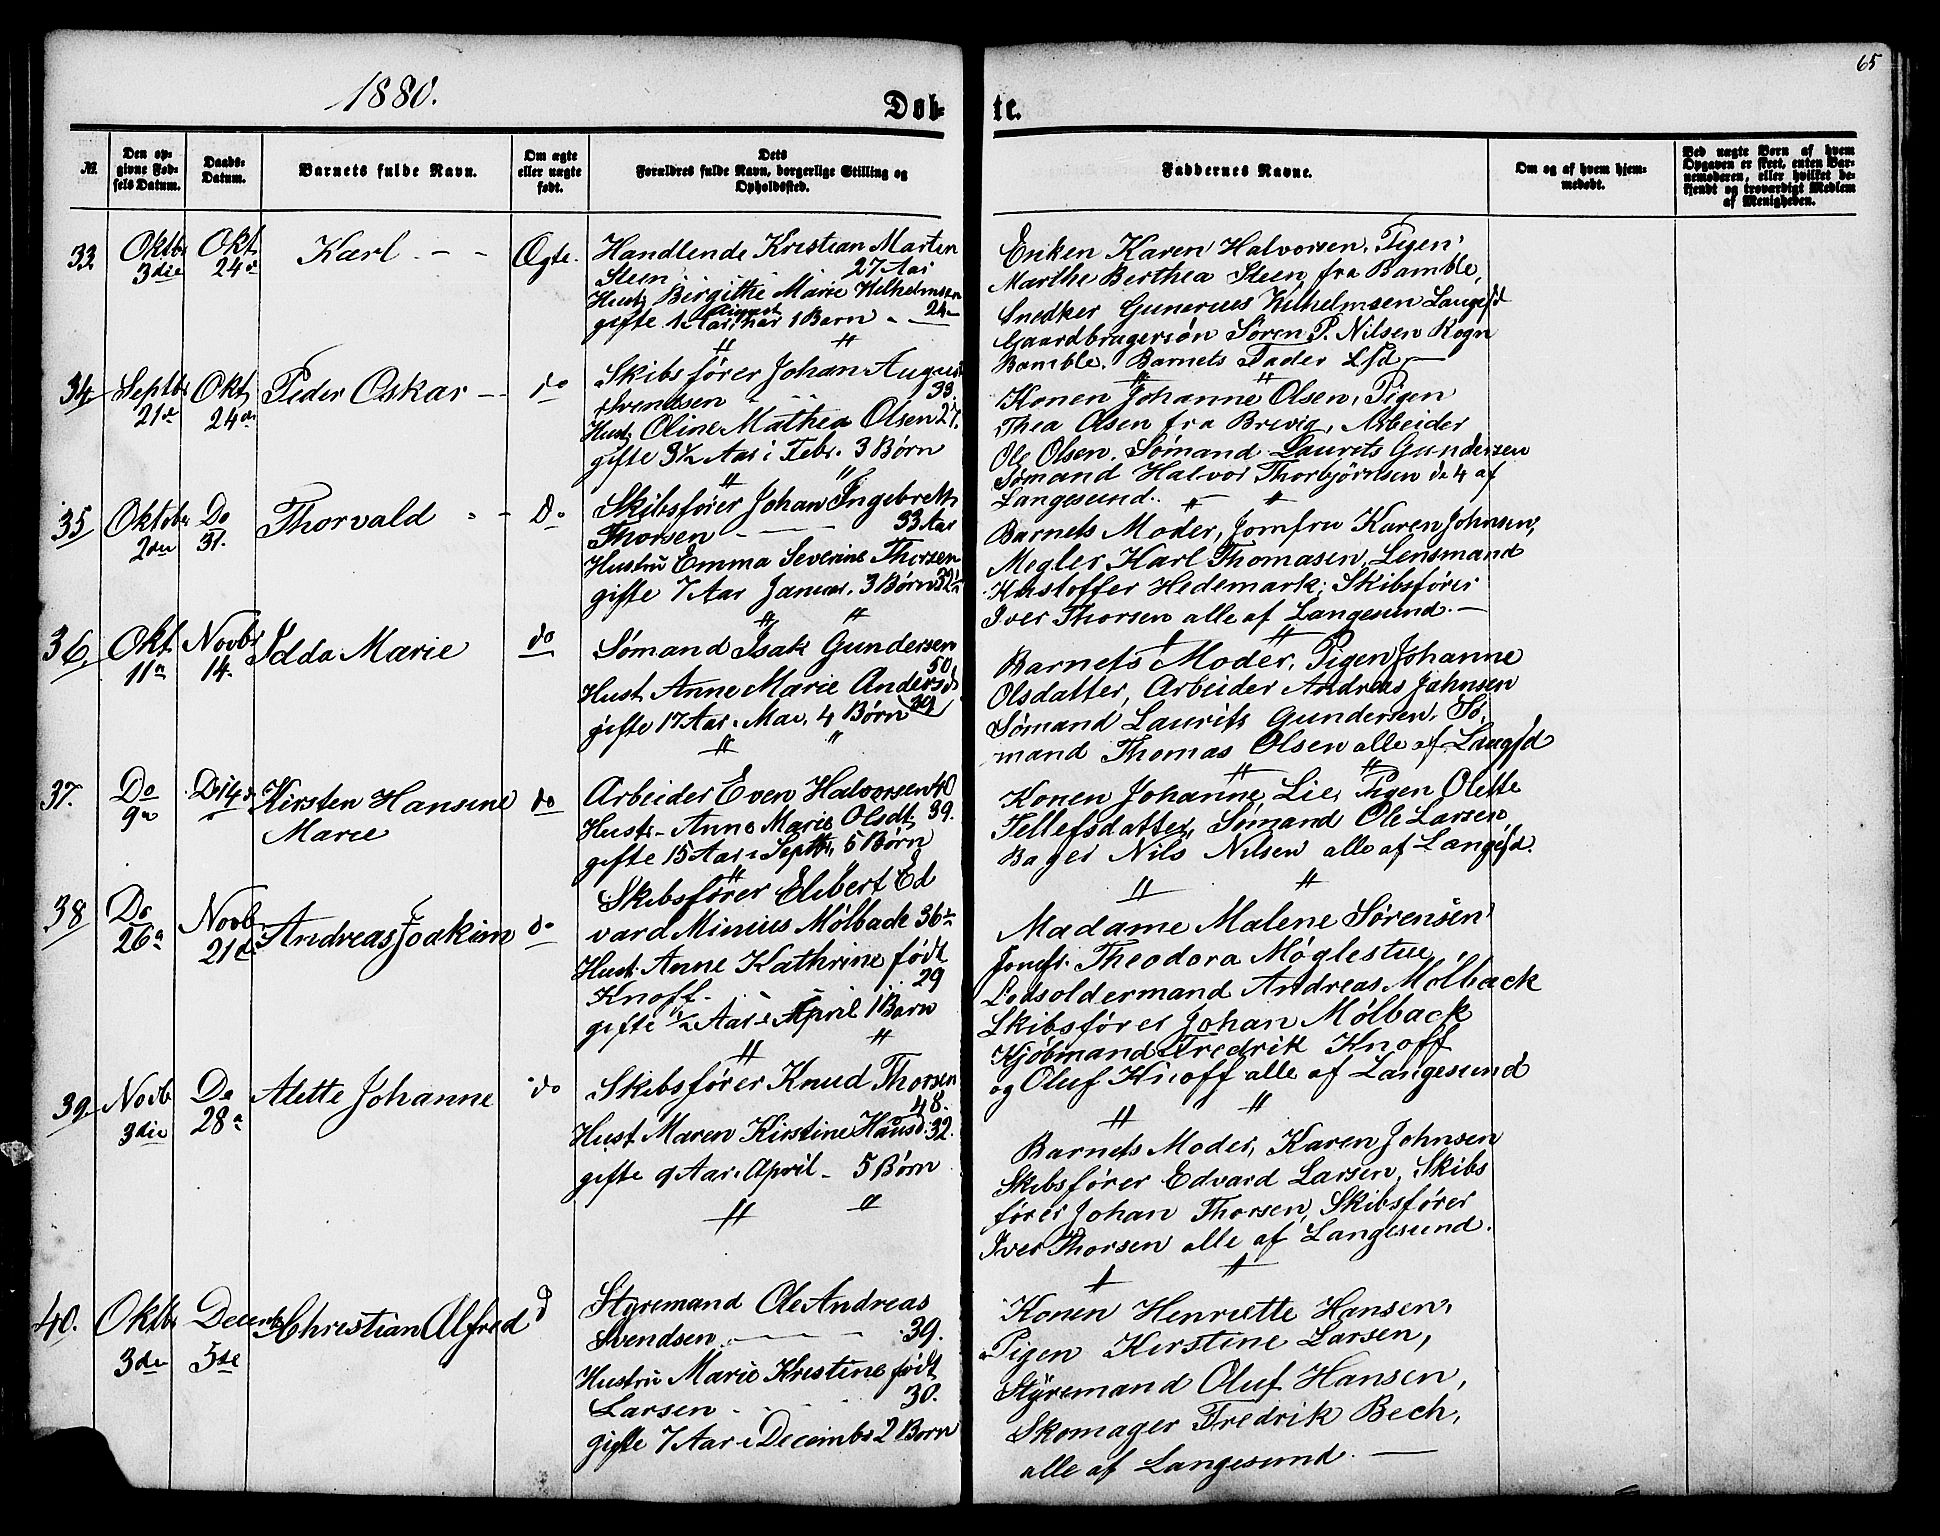 65
1880.
Døb- te.
№
Den op-
givne Fød-
sels Datum.
Daabs-
Datum.
Barnets fulde Navn.
Om ægte
eller uægte
født.
Dets
Forældres fulde Navn, borgerlige Stilling og
Opholdssted.
Faddernes Navne.
Om og af hvem hjem-
medøbt.
Ved uægte Børn af hvem
Opgaven er skeet, enten Bar-
nemoderen, eller hvilket be-
kjendt og troværdigt Medlem
af Menigheden.
33 Oktbr 3die Okt. 24de Karl - - Ægte.
Handlende Kristian Marten
Steen 27 Aar
Hust. Birgithe Marie Wilhelmsen
gifte 1 Aar August har 1 Barn - 24
Enken Karen Halvorsen, Pigen
Marthe Berthea Steen fra Bamble,
Snedker Gunerius Wilhelmsen Langesd
Gaardbrugersøn Søren P. Nilsen Rogn
Bamble. Barnets Fader Lsd
34 Septbr 21de Okt. 24de Peder Oskar - - do
Skibsfører Johan August
Svendsen - - 33.
Hust. Oline Mathea Olsen 27.
gifte 3½ Aar i Febr. 3 Børn
Konen Johanne Olsen, Pigen
Thea Olsen fra Brevig, Arbeider
Ole Olsen. Sømand Laurits Gundersen
Sømand Halvor Thorbjørnsen de 4 af
Langesund.
35 Oktobr 2den Do 31. Thorvald - - Do
Skibsfører Johan Ingebreth
Thorsen - 33 Aar
Hustru Emma Severine Thorsen
gifte 7 Aar Januar. 3 Børn 32½
Barnets Moder, Jomfru Karen Johnsen,
Megler Karl Thomasen, Lensmand
Kristoffer Hedemark, Skibsfører
Iver Thorsen alle af Langesund. -
36 Okt. 11te Novbr 14. Idda Marie do
Sømand Isak Gundersen
50
Hust. Anne Marie Andersd.
gifte 17 Aar. Mai, 4 Børn 39
Barnets Moder, Pigen Johanne
Olsdatter, Arbeider Andreas Johnsen
Sømand Laurits Gundersen. Sø-
mand Thomas Olsen alle af Langsd
37. Do 9de D. 14de Kirsten Hansine
Marie do
Arbeider Even Halvorsen 40
Hustr. Anne Marie Olsdt. 39.
gifte 15 Aar i Septbr, 6 Børn
Konen Johanne Lie, Pigen Olette
Tellefsdatter, Sømand Ole Larsen,
Bager Nils Nilsen alle af Langesd.
38 Do 26de Novb. 21de Andreas Joakim do
Skibsfører Elibert Ed
vard Minius Mølback 36½
Hust. Anne Kathrine født
Knoff. 29
gifte ½ Aar i April 1 Barn
Madame Malene Sørensen
Jomfr. Theodora Møglestue
Lodsoldermand Andreas Mølback
Skibsfører Johan Mølback
Kjøbmand Fredrik Knoff
og Oluf Knoff alle af Langesund
39 Novb 3die Do 28de Alette Johanne do
Skibsfører Knud Thorsen
48.
Hust. Maren Kirstine Hansd. 32.
gifte 9 Aar i April - 5 Børn
Barnets Moder, Karen Johnsen
Skibsfører Edvard Larsen, Skibs
fører Johan Thorsen, Skibsfører
Iver Thorsen alle af Langesund.
40. Oktbr 3die Decembr 5te Christian Alfred d
Styremand Ole Andreas
Svendsen - - 39.
Hustru Marie Kristine født
Larsen - - 30.
gifte 7 Aar i Decembr 2 Born
Konen Henriette Hansen,
Pigen Kirstine Larsen,
Styremand Oluf Hansen,
Skomager Fredrik Bech,
alle af Langesund. -